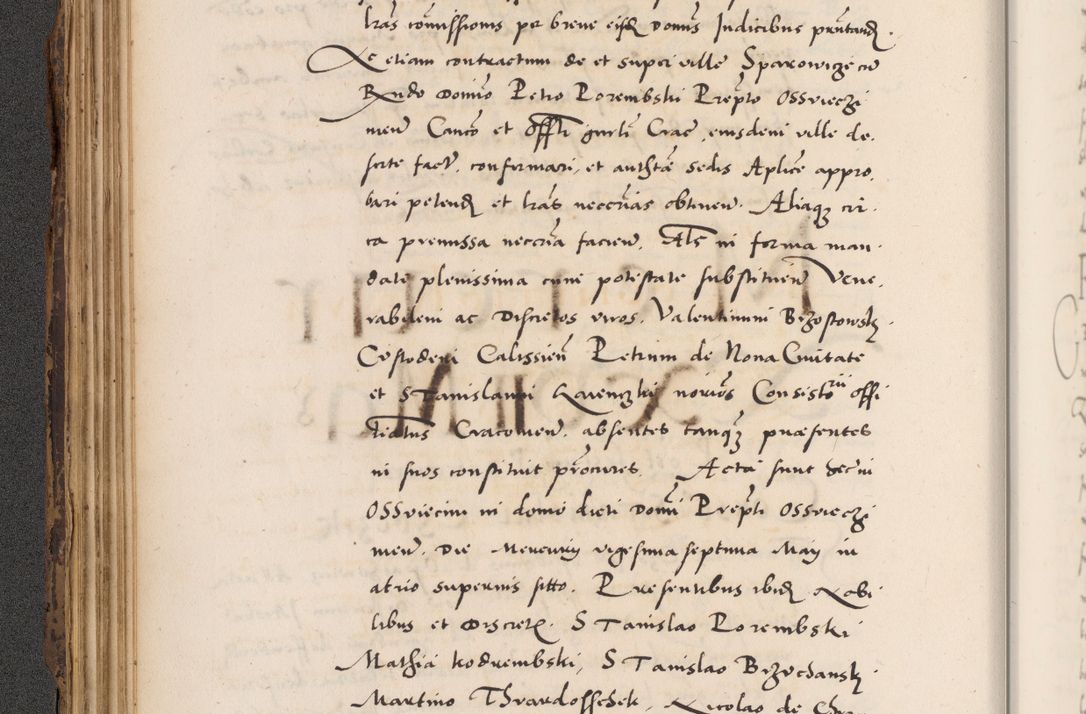 lras comissionis per breve eisd Domis Judicibus prntand.
Ac etiam contractum de et super ville Sparowicze cu
Rndo Domino Petro Porembski Prepto OSSvieczi
men Canco et offli gnrli Crac, eiusdem ville de
sorte fact, confirmari, et authtae sedis Aplice appro.
bari petend et lras neccrias obtinen. Aliaq cir
ca premissa neccria facien. Als in forma man
date plenissima cum potestate substituen Vene
rabilem ac Discretos viros, Valentinum Brzostowsk
Custodem Calissien Petrum de Nona Civitate
et STanislaum Karenczki norios Consistorii offi
tialtus Cracovien. absentes tanq praesentes
in suos constituit procures. Acta sunt hec in
OSSviecim in domo dicti Domi Prepti OSSviecZi
men. Die Mercurij vigesima septima Maij in
atrio superiius sitto. Presentibus ibid Nobi
libus et Discret. STanislao Porembski
Mathia kodrembski, STanislao Brzechansk
Martino Thvardosschek, Nicolao de